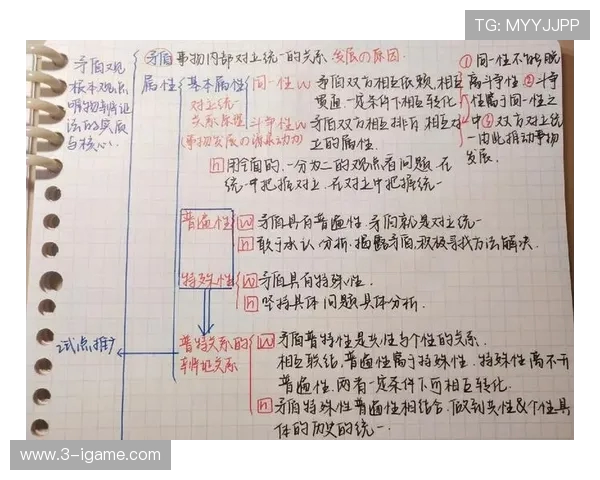 TG: MYYJJPP
矛盾观
根本观点
唯物辩证
法的实质
与核心
矛盾 事物内部对立统一的关系 发展の原因
属性 基本属性
对立统一
关系原理
(事物发展の源泉动力)
同一性 w 矛盾双方相互依赖,相互
贯通,一定条件下相互转化
斗争性 w 矛盾双方相互排斥 相互对
立的属性
① 同一性不能脱
离斗争性 ② 斗争
性寓于同一性之
中 ③ 双方对立统
一由此推动事物
发展.
n 用全面的,一分为二的观点看问题,在
统一中把握对立,在对立中把握统一
普遍性 w 矛盾具有普遍性,矛盾就是对立统一
n 敢于承认 分析,揭露矛盾,积极寻找方法解决.
特殊性 w 矛盾具有特殊性.
n 坚持具体问题具体分析.
试点推广
普特关系的
辩证关系
w 矛盾普特性是共性与个性的关系.
相互联结,普遍性寓于特殊性,特殊性离不开
普遍性,两者一定条件下可相互转化.
n 矛盾特殊性普遍性相结合,做到共性&个性具
体的历史的统一.
www.3-igame.com